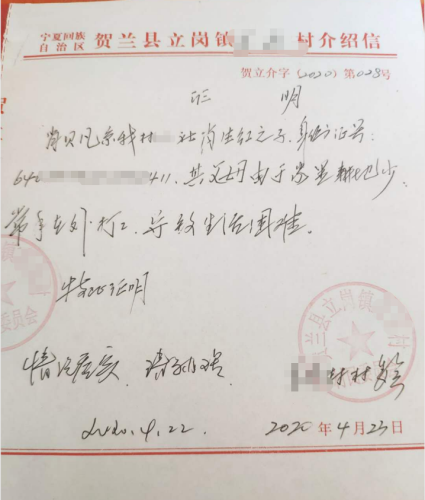 宁夏回族
自治区 贺兰县立岗镇 村介绍信
贺立介字(2020)第028号
证 明
肖贝凡系我村 社肖生红之子,身份证号:
642 411,其父母由于家里耕地少,
常年在外打工,导致生活困难。
特此证明
情况属实,请办理。
村村委会
2020.4.22.
2020年4月23日
贺兰县立岗镇 村
委员会